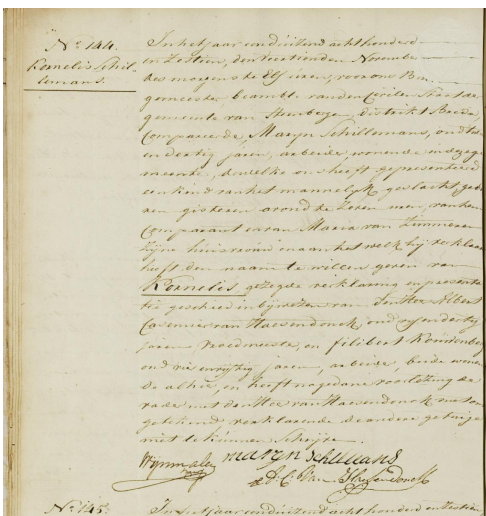 No. 144.
Kornelis Schil-
lemans.
In het jaar een duizend acht honderd
en Zestien, den veertienden Novemb
des morgens te Elf uren, voor ons Bur-
gemeester, beambte van den Civilen Staat der
gemeente van Steenbergen, distrikt Breda,
Compareerde, Maryn Schillemans, oud
en dertig jaren, arbeider, wonende in deze ge
meente, dewelke ons heeft gepresenteerd
een kind van het mannelyk geslacht, geb
ren gisteren avond te Zeven uren, van hem
Comparant en van Maria van Zimmeren
Zijne huisvrouw en aan het welk hij verklaar
heeft den naam te willen geven van
Kornelis, gezegde verklaring en presenta-
tie geschied in bijwezen van den Heer Albert
Casemier van Haesendonck, oud en dertig
jaren Vroedmeester, en filibert
oud vier en vijftig jaren, arbeider, beide wonen-
de alhier, en heeft na gedane voorlezing de
vader met den Heer van Haesendonck met ons
getekend verklarende de andere getuige
niet te kunnen Schrijven.
maryn schillemans
A. C. Van Haesendonck
No. 145.
In het jaar een duizend acht honderd en Zestien